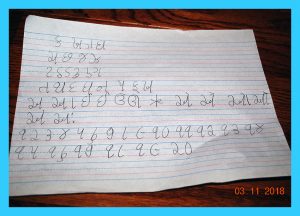 ક ખ ગ ઘ
ચ છ જ ઝ
ટ ઠ ડ ઢ ણ
ત થ દ ધ ન પ ફ બ
અ આ ઇ ઈ ઉ ઊ ઋ એ ઐ ઓ ઔ
અં અઃ
૧ ૨ ૩ ૪ ૫ ૬ ૭ ૮ ૯ ૧૦ ૧૧ ૧૨ ૧૩ ૧૪
૧૫ ૧૬ ૧૭ ૧૮ ૧૯ ૨૦
03 11 2018